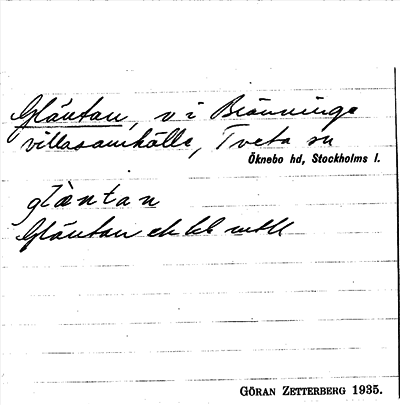 Gläntan, v i Bränninge
villasamhälle, Tveta sn
Öknebo hd, Stockholms l.
glàntan
Gläntan ek bl mtl
GÖRAN ZETTERBERG 1935.